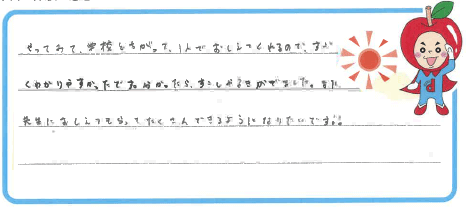 やってみて、学校とちがって、1人でおしえてくれるので、すご
くわかりやすかったです。わかったら、すこしやるきがでました。また
先生におしえてもらってたくさんできるようになりたいです。